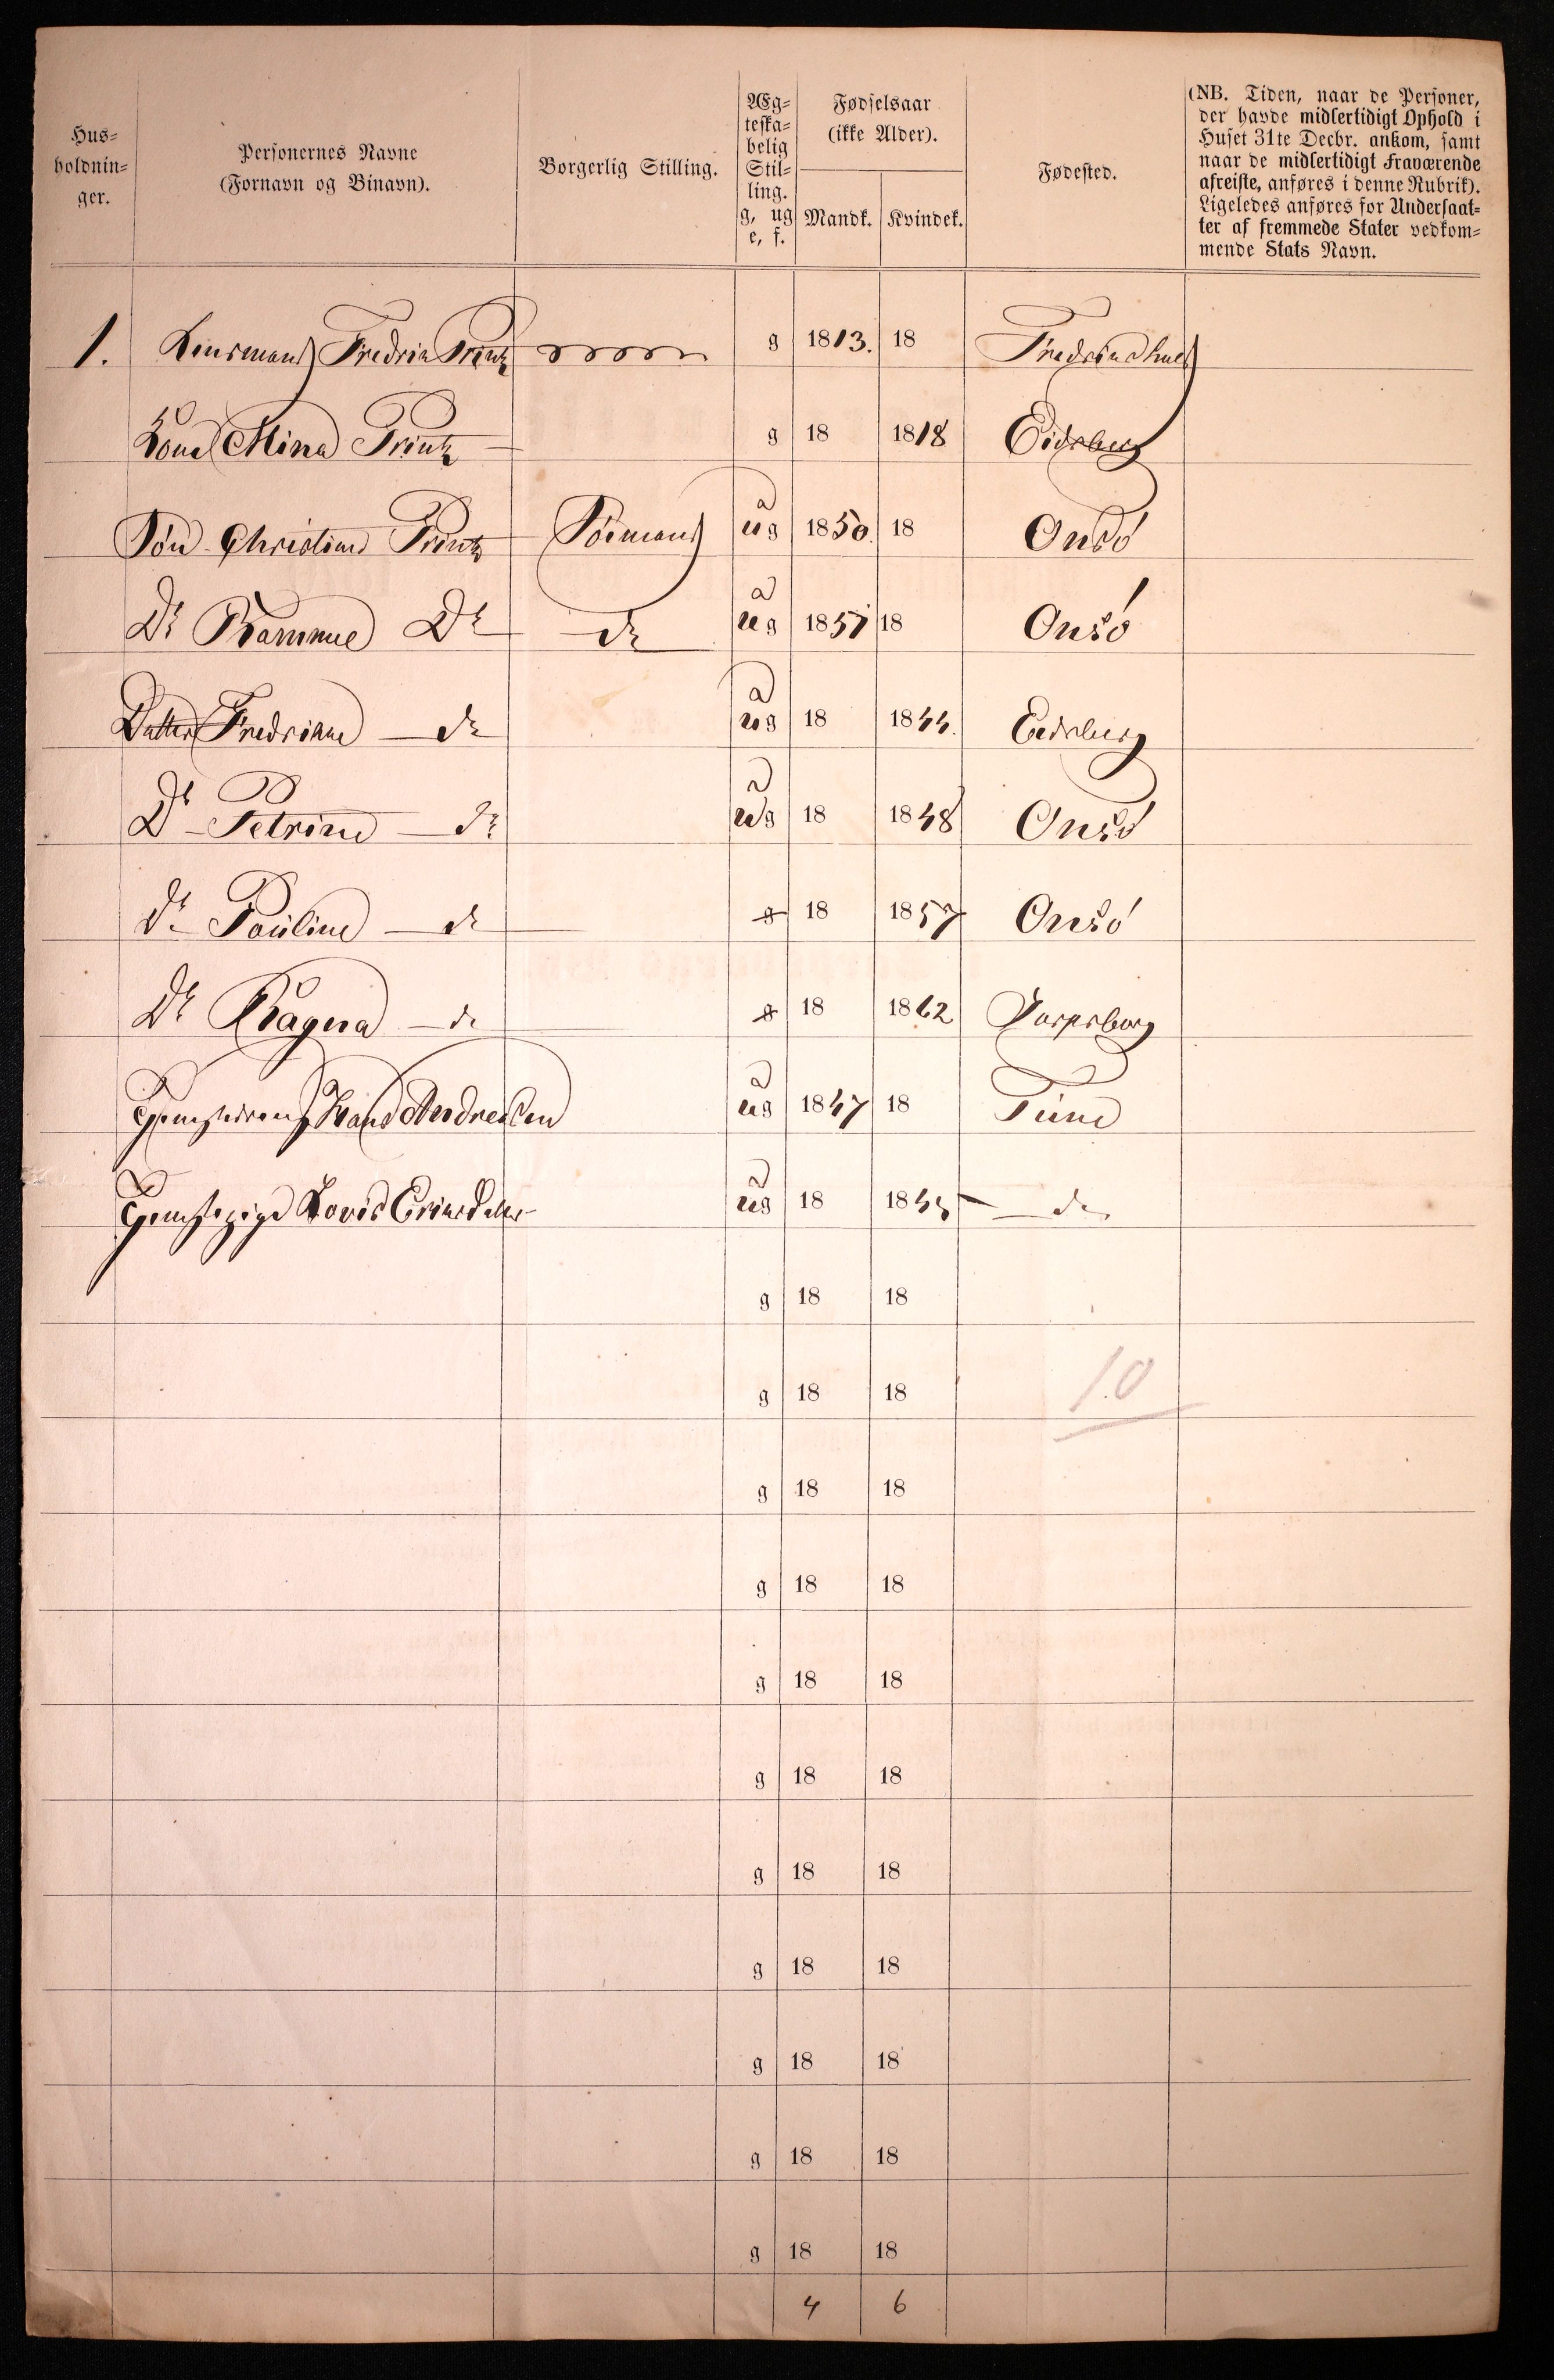 Hus-
holdnin-
ger.
Personernes Navne
(Fornavn og Binavn).
Borgerlig Stilling.
Æg-
teska-
belig
Stil-
ling.
g, ug
e, f.
Fødselsaar
(ikke Alder).
Mandk. Kvindek.
Fødested.
(NB. Tiden, naar de Personer,
der havde midlertidigt Ophold i
Huset 31te Decbr. ankom, samt
naar de midlertidigt Fraværende
afreiste, anføres i denne Rubrik).
Ligeledes anføres for Undersaat-
ter af fremmede Stater vedkom-
mende Stats Navn.
1. Fredrik Printz g 1813. 18
Kone Mina Printz g 18 1818 Eidsberg
Sön Christian Printz Sömand ug 1850. 18 Onsö
Do Do do ug 1851 18 Onsö
Datter Fredrikke do ug 18 1844. Eidsberg
Do Petrine do ug 18 1848 Onsö
do Pauline do g 18 1857 Onsö
Do Ragna do g 18 1862 Sarpsborg
Hans Andresen ug 1847 18 Tune
Tjenstepige Lovise Eriksdatter ug 18 1845 do
g 18 18
g 18 18 10
g 18 18
g 18 18
g 18 18
g 18 18
g 18 18
g 18 18
g 18 18
g 18 18
g 18 18
4 6